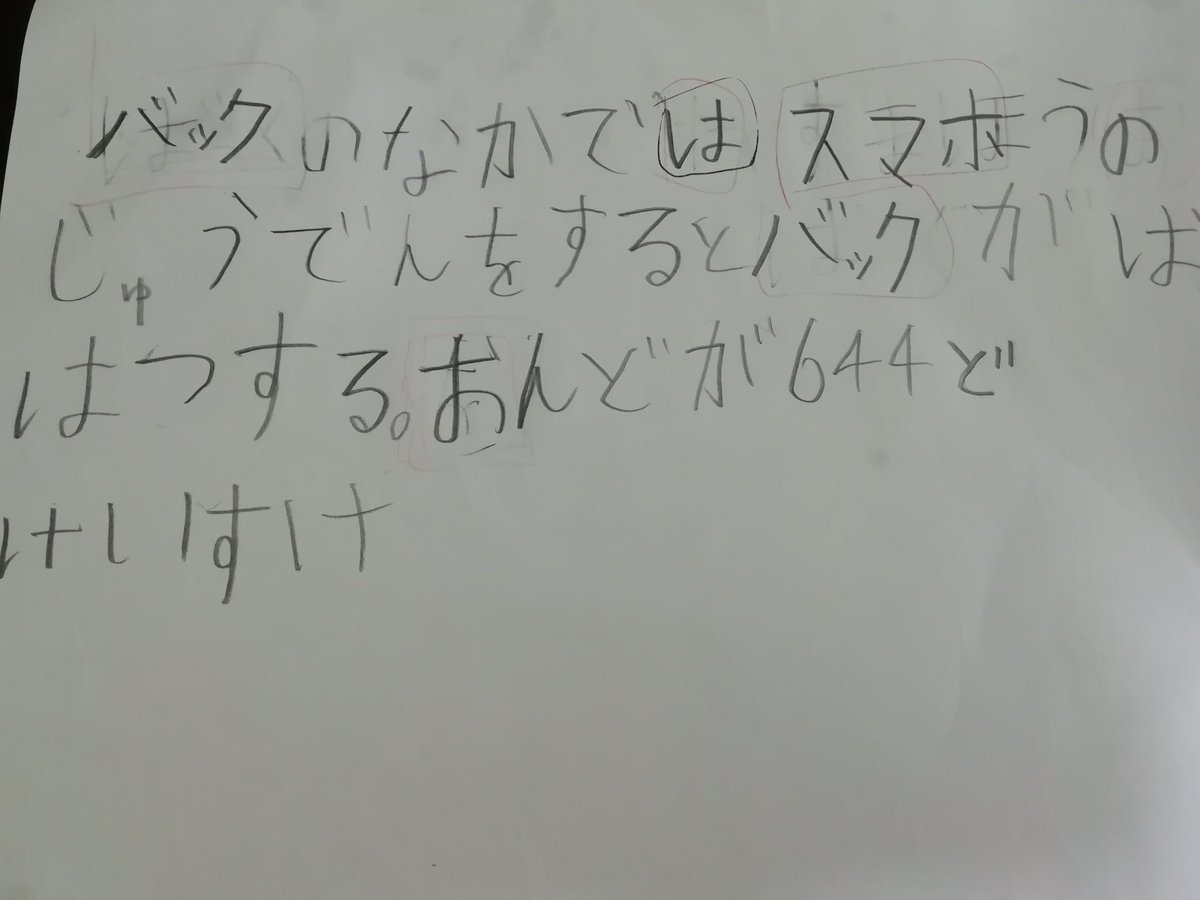 バックのなかでは スマホうの
じゅうでんをするとバックがば
はつする。おんどが644ど
けいすけ